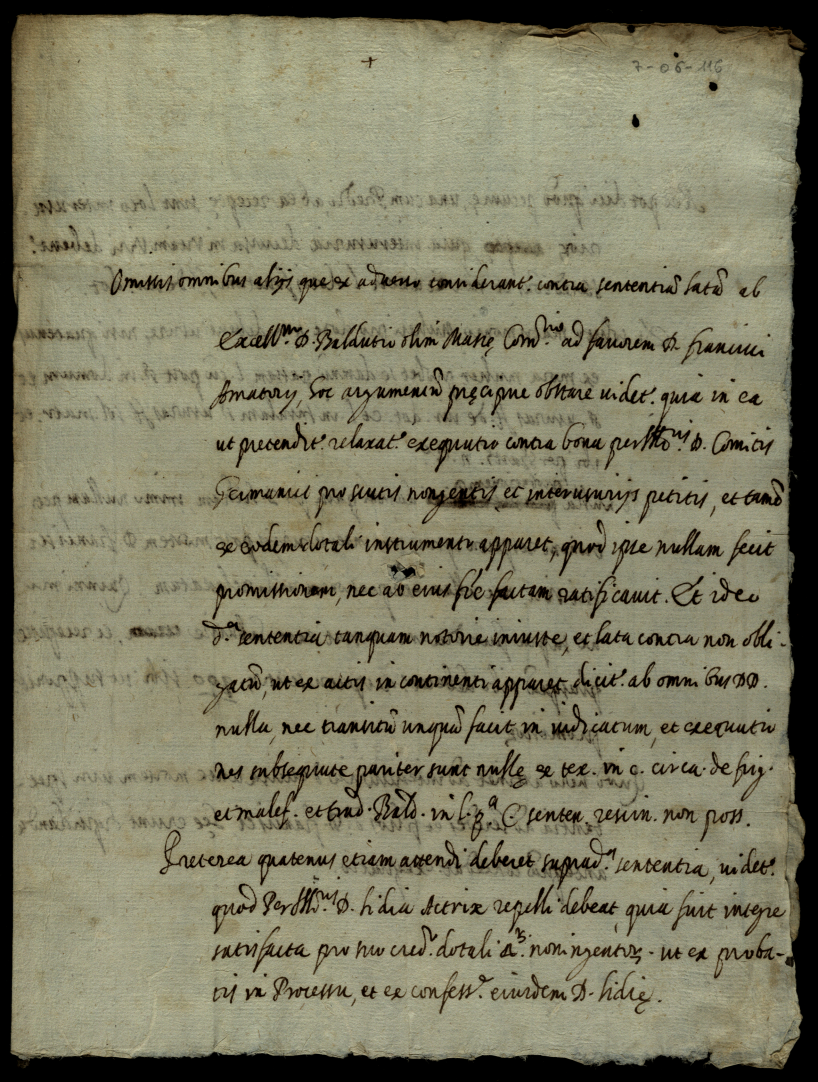 +
7-06-116
Omissis omnibus alijs que ex adverso considerant.r contra sententiã latã ab
Excell.mo D. Baldutio olim Masse Com.rio ad favorem D. Francisci
Amatorij, hoc argumentũ precipue obstare videt.r quia in ea
ut pretendit.r relaxat.r exequutio contra bona perIll.ris D. Comitis
Germanici pro scutis nongentis et interusurijs petitis, et tamẽ
ex eodem dotali instrumento apparet, quod ipse nullam fecit
promissionem, nec ab eius f.e factam ratificavit. Et ideo
d.a sententia tanquam notorie iniuste, et lata contra non obli-
gatũ, ut ex actis in continenti apparet dicit.r ab omnibus DD.
nulla, nec transitũ unquã facit in iudicatum, et exequutio
nes subsequute pariter sunt nullę ex tex. in c. circa. de frig.
et malef. et trad. Bald. in l. p.a C. senten. rescin. non poss.
Preterea quatenus etiam attendi deberet suprad.a sententia, videt.r
quod PerIll.ris D. Lidia Actrix repelli debeat, quia fuit integre
satisfacta pro suo cred.o dotali noningentor. ut ex proba-
tis in Processu, et ex confess.e eiusdem D. Lidię.